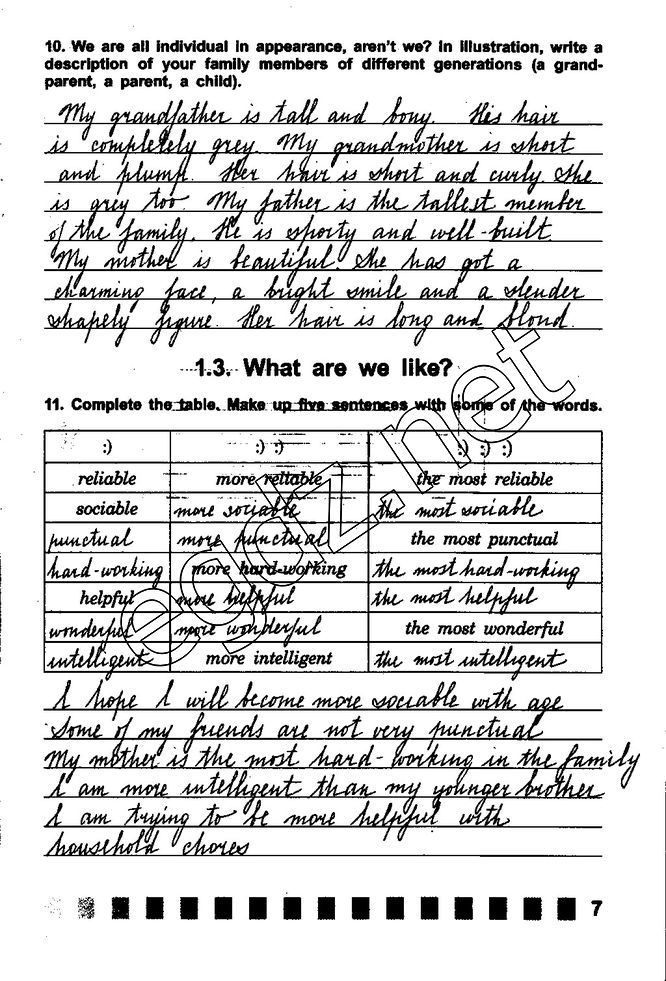 10. We are all individual in appearance, aren't we? In illustration, write a
description of your family members of different generations (a grand-
parent, a parent, a child).
My grandfather is tall and bony. His hair
is completely grey. My grandmother is short
and plump. Her hair is short and curly. She
is grey too. My father is the tallest member
of the family. He is sporty and well-built.
My mother is beautiful. She has got a
charming face, a bright smile and a slender
shapely figure. Her hair is long and blond.
1.3. What are we like?
11. Complete the table. Make up five sentences with some of the words.
:) :) :) :) :) :)
reliable more reliable the most reliable
sociable more sociable the most sociable
punctual more punctual the most punctual
hard-working more hard-working the most hard-working
helpful more helpful the most helpful
wonderful more wonderful the most wonderful
intelligent more intelligent the most intelligent
I hope I will become more sociable with age
Some of my friends are not very punctual
My mother is the most hard-working in the family
I am more intelligent than my younger brother
I am trying to be more helpful with
household chores
7
egdz.net